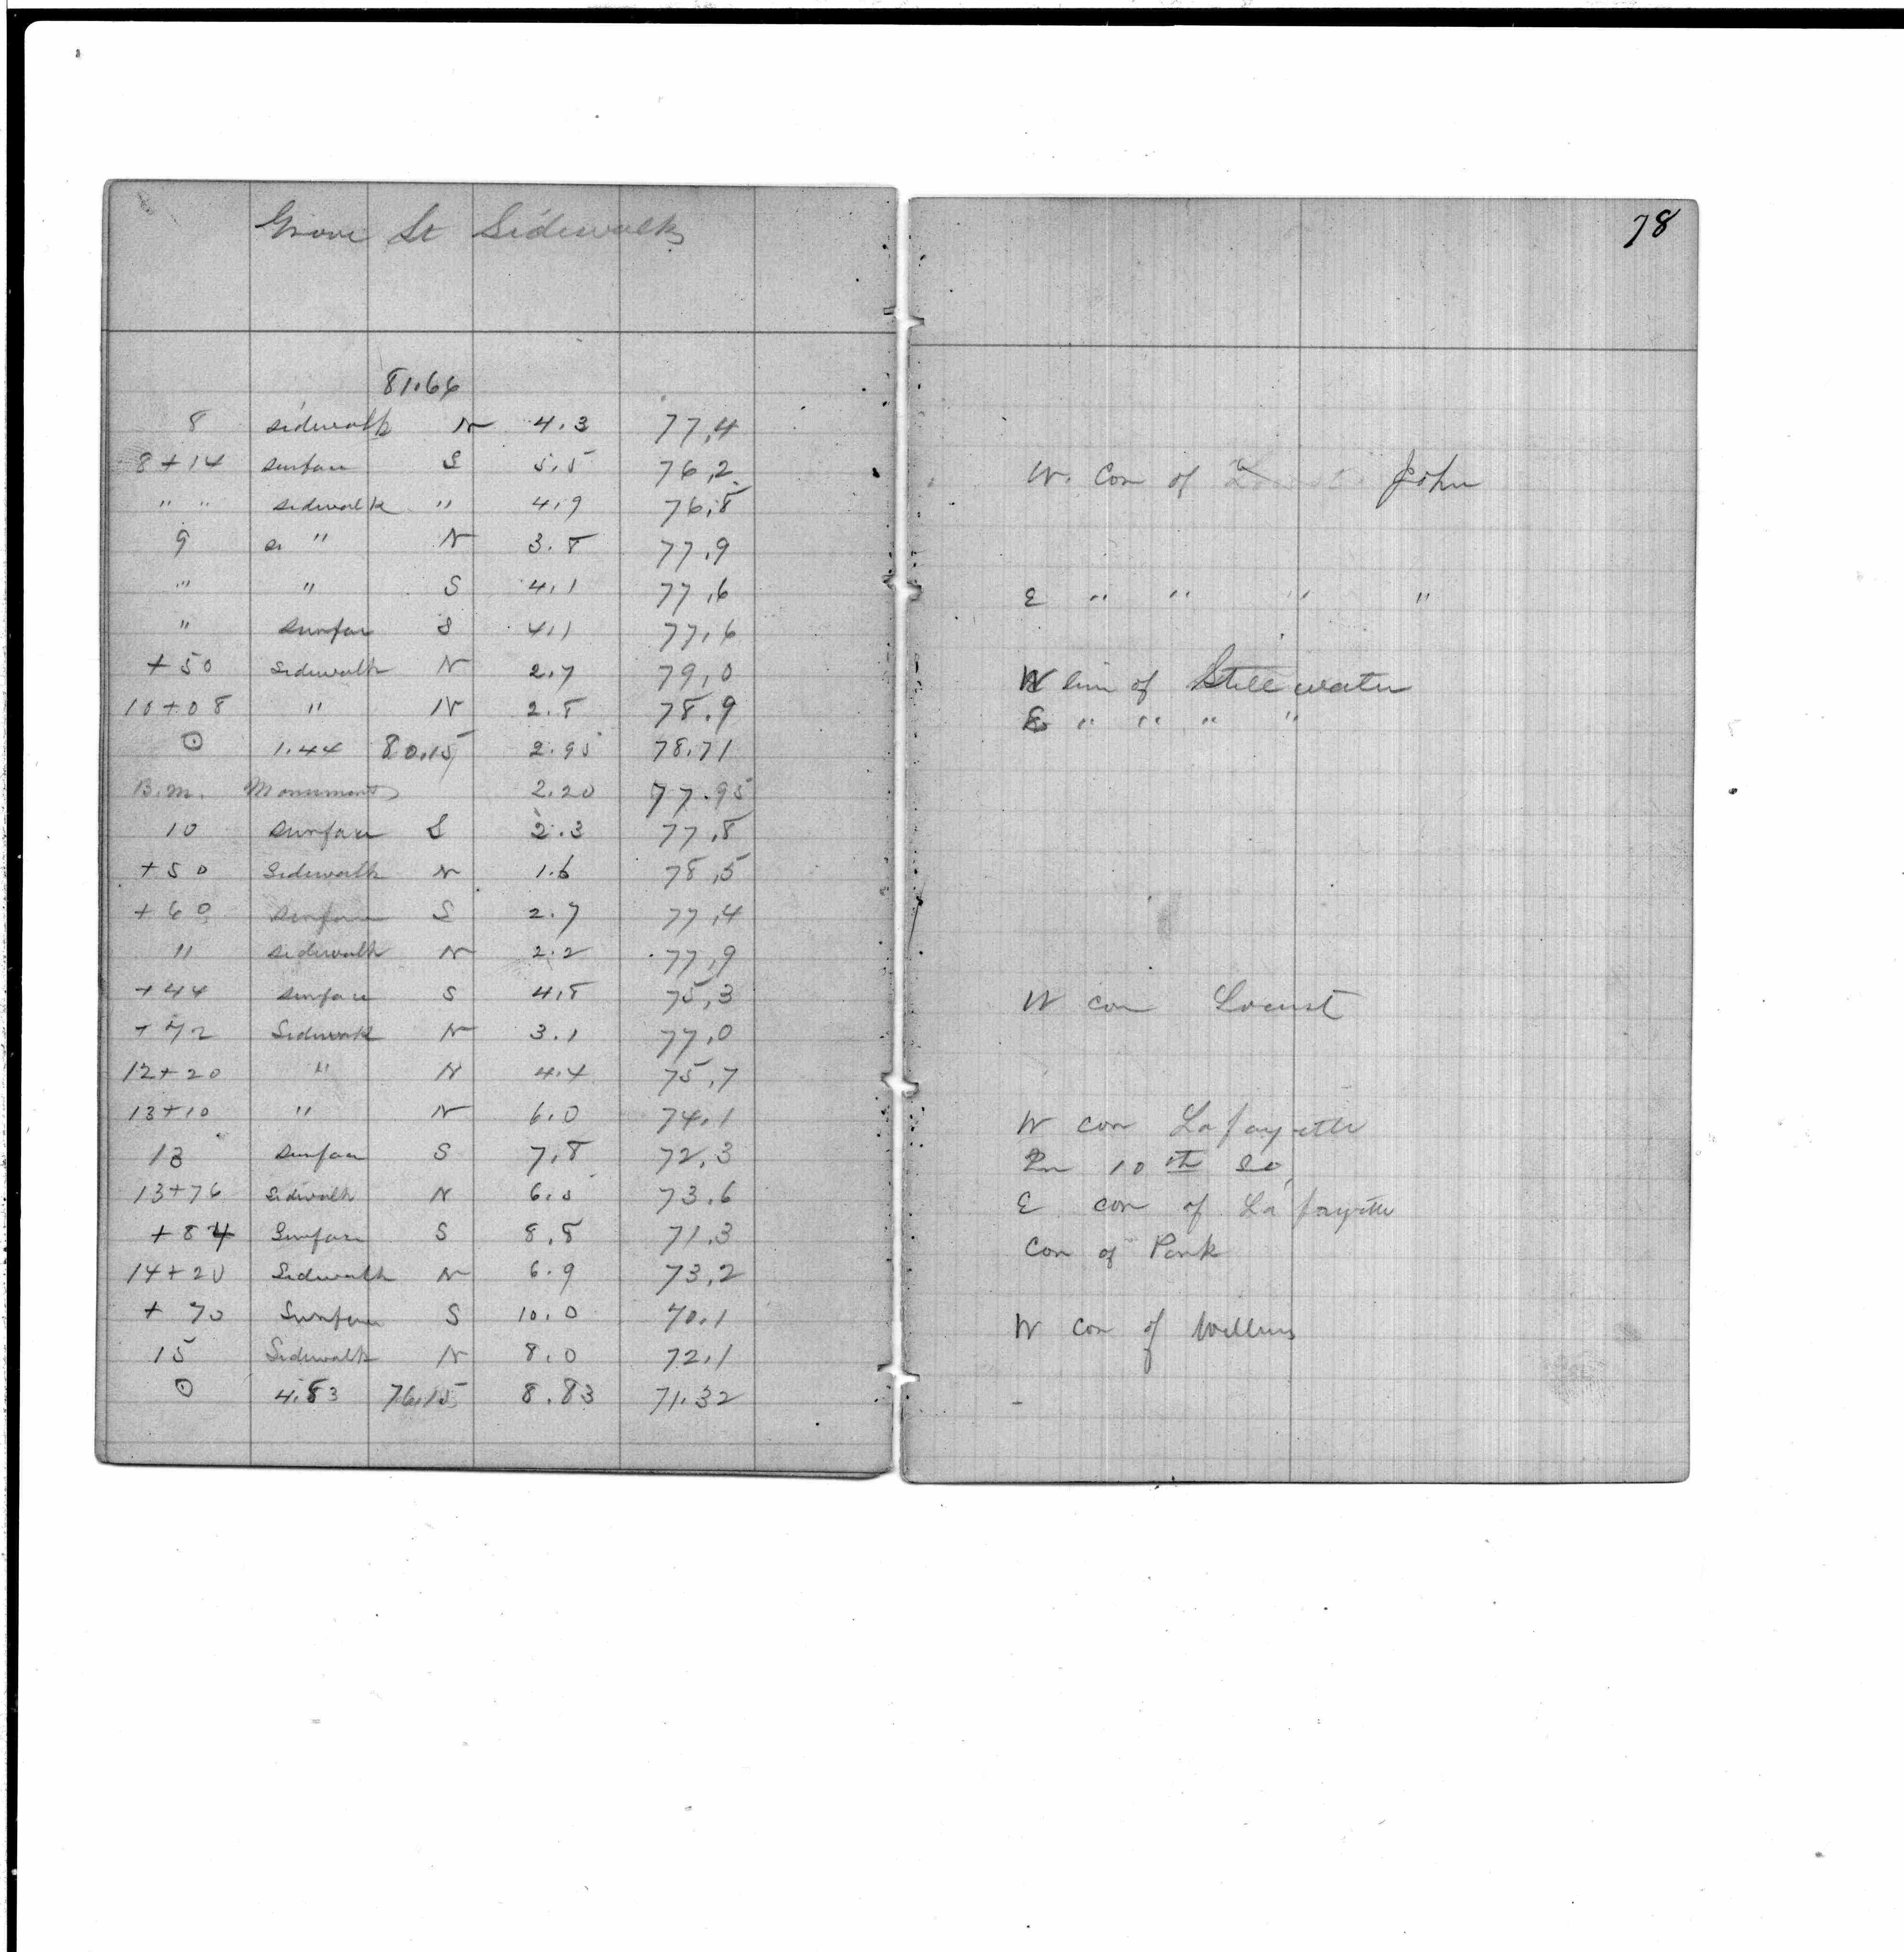 Grove St Sidewalks
78
81.66
8 sidewalk N 4.3 77.4
8+14 surface S 5.5 76.2 W. Cor of John
" " sidewalk " 4.9 76.8
9 " N 3.8 77.9
" " S 4.1 77.6 E " " " "
" surface S 4.1 77.6
+50 Sidewalk N 2.7 79.0 W line of Stillwater
10+08 " N 2.8 78.9 E " " " "
⊙ 1.44 80.15 2.95 78.71
B.M. Monument 2.20 77.95
10 surface S 2.3 77.8
+50 Sidewalk N 1.6 78.5
+60 surface S 2.7 77.4
" sidewalk N 2.2 77.9
+44 surface S 4.8 75.3 W cor Locust
+72 Sidewalk N 3.1 77.0
12+20 " N 4.4 75.7
13+10 " N 6.0 74.1 W cor Lafayette
13 surface S 7.8 72.3 10th So
13+76 Sidewalk N 6.5 73.6 E cor of Lafayette
+84 Surface S 8.8 71.3 Cor of Park
14+20 Sidewalk N 6.9 73.2
+70 Surface S 10.0 70.1 W cor of Willius
15 Sidewalk N 8.0 72.1
⊙ 4.83 76.15 8.83 71.32 -